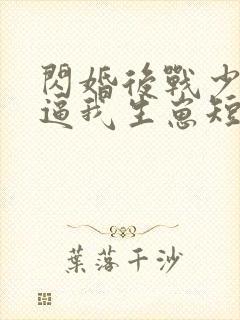 閃婚後戰少
逼我生崽短
葉落千沙